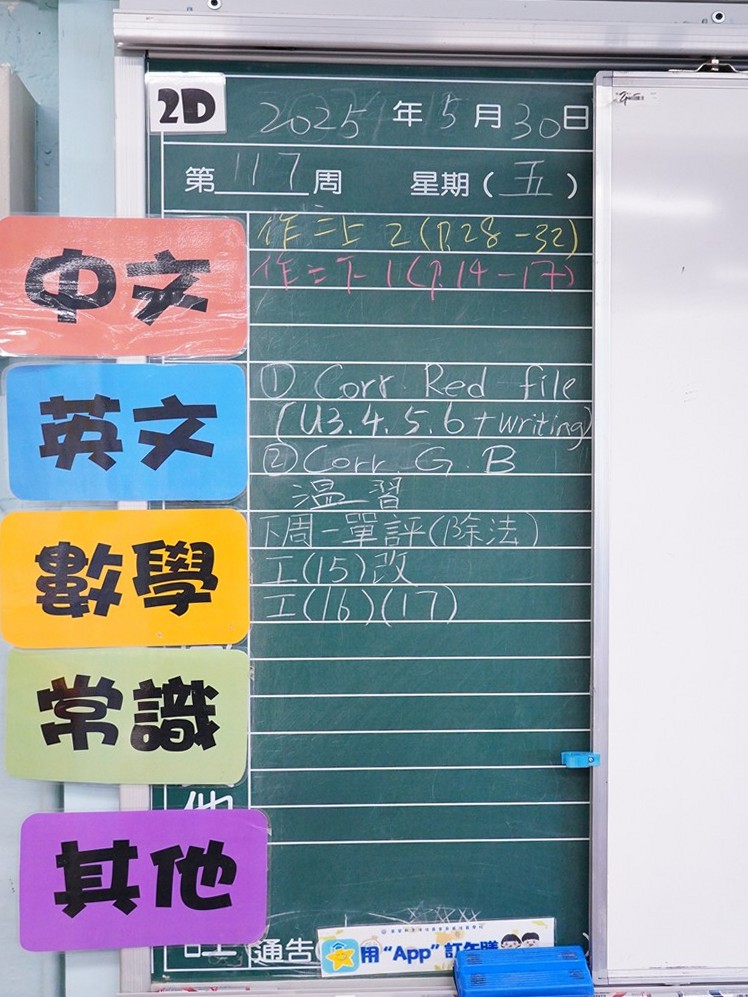 2D
2025年5月30日
第 117 周 星期(五)
中文
作二上 2 (P.28-32)
作二下 1 (P.14-17)
英文
① Corr Red file
(U3.4.5.6+writing)
② Corr G.B
溫習
數學
下周一單評(除法)
工(15)改
工(16)(17)
常識
他
其他
通告
用“App”訂午膳